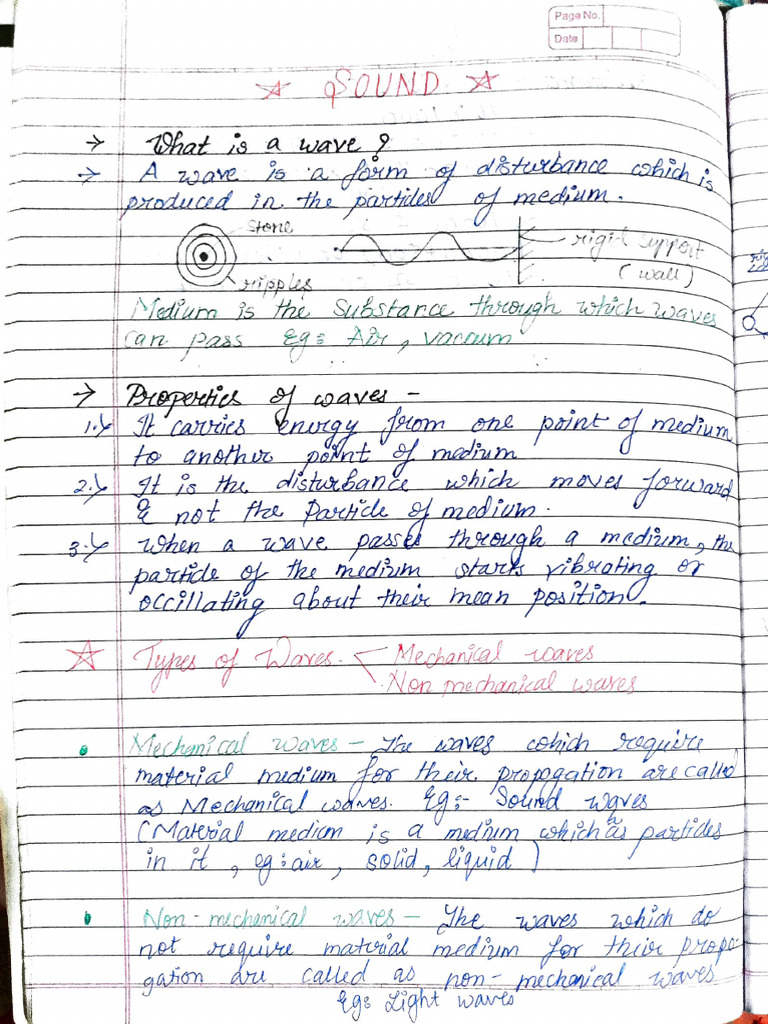 Page No.
Date
☆ SOUND ☆
→ What is a wave ?
→ A wave is a form of disturbance which is
produced in the particles of medium.
stone
ripples
rigid support
(wall)
Medium is the substance through which waves
can pass Eg: Air, vacuum
→ Properties of waves -
1.) It carries energy from one point of medium
to another point of medium
2.) It is the disturbance which moves forward
& not the Particle of medium.
3.) When a wave passes through a medium, the
particle of the medium starts vibrating or
occillating about their mean position.
☆ Types of Waves.
Mechanical waves
Non mechanical waves
• Mechanical waves - The waves which require
material medium for their propogation are called
as Mechanical waves. Eg:- Sound waves
(Material medium is a medium which has particles
in it, eg: air, solid, liquid)
• Non-mechanical waves - The waves which do
not require material medium for their propo-
gation are called as non-mechanical waves
Eg: Light waves